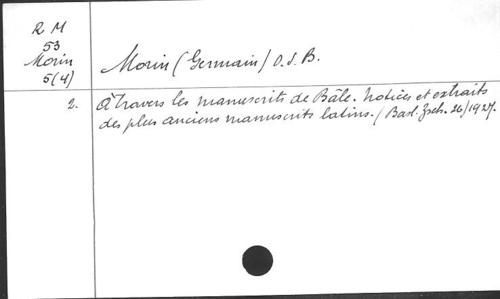 R M
53
Morin
5(4)
Morin (Germain) O.S.B.
2. À travers les manuscrits de Bâle. Notices et extraits
des plus anciens manuscrits latins. (Basl. Zsch. 26/1927.